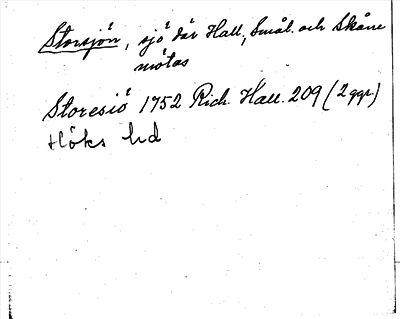 Storsjön, sjö där Hall., Smål. och Skåne
mötas
Storesiö 1752 Rich. Hall. 209 (2 ggr)
Höks hd